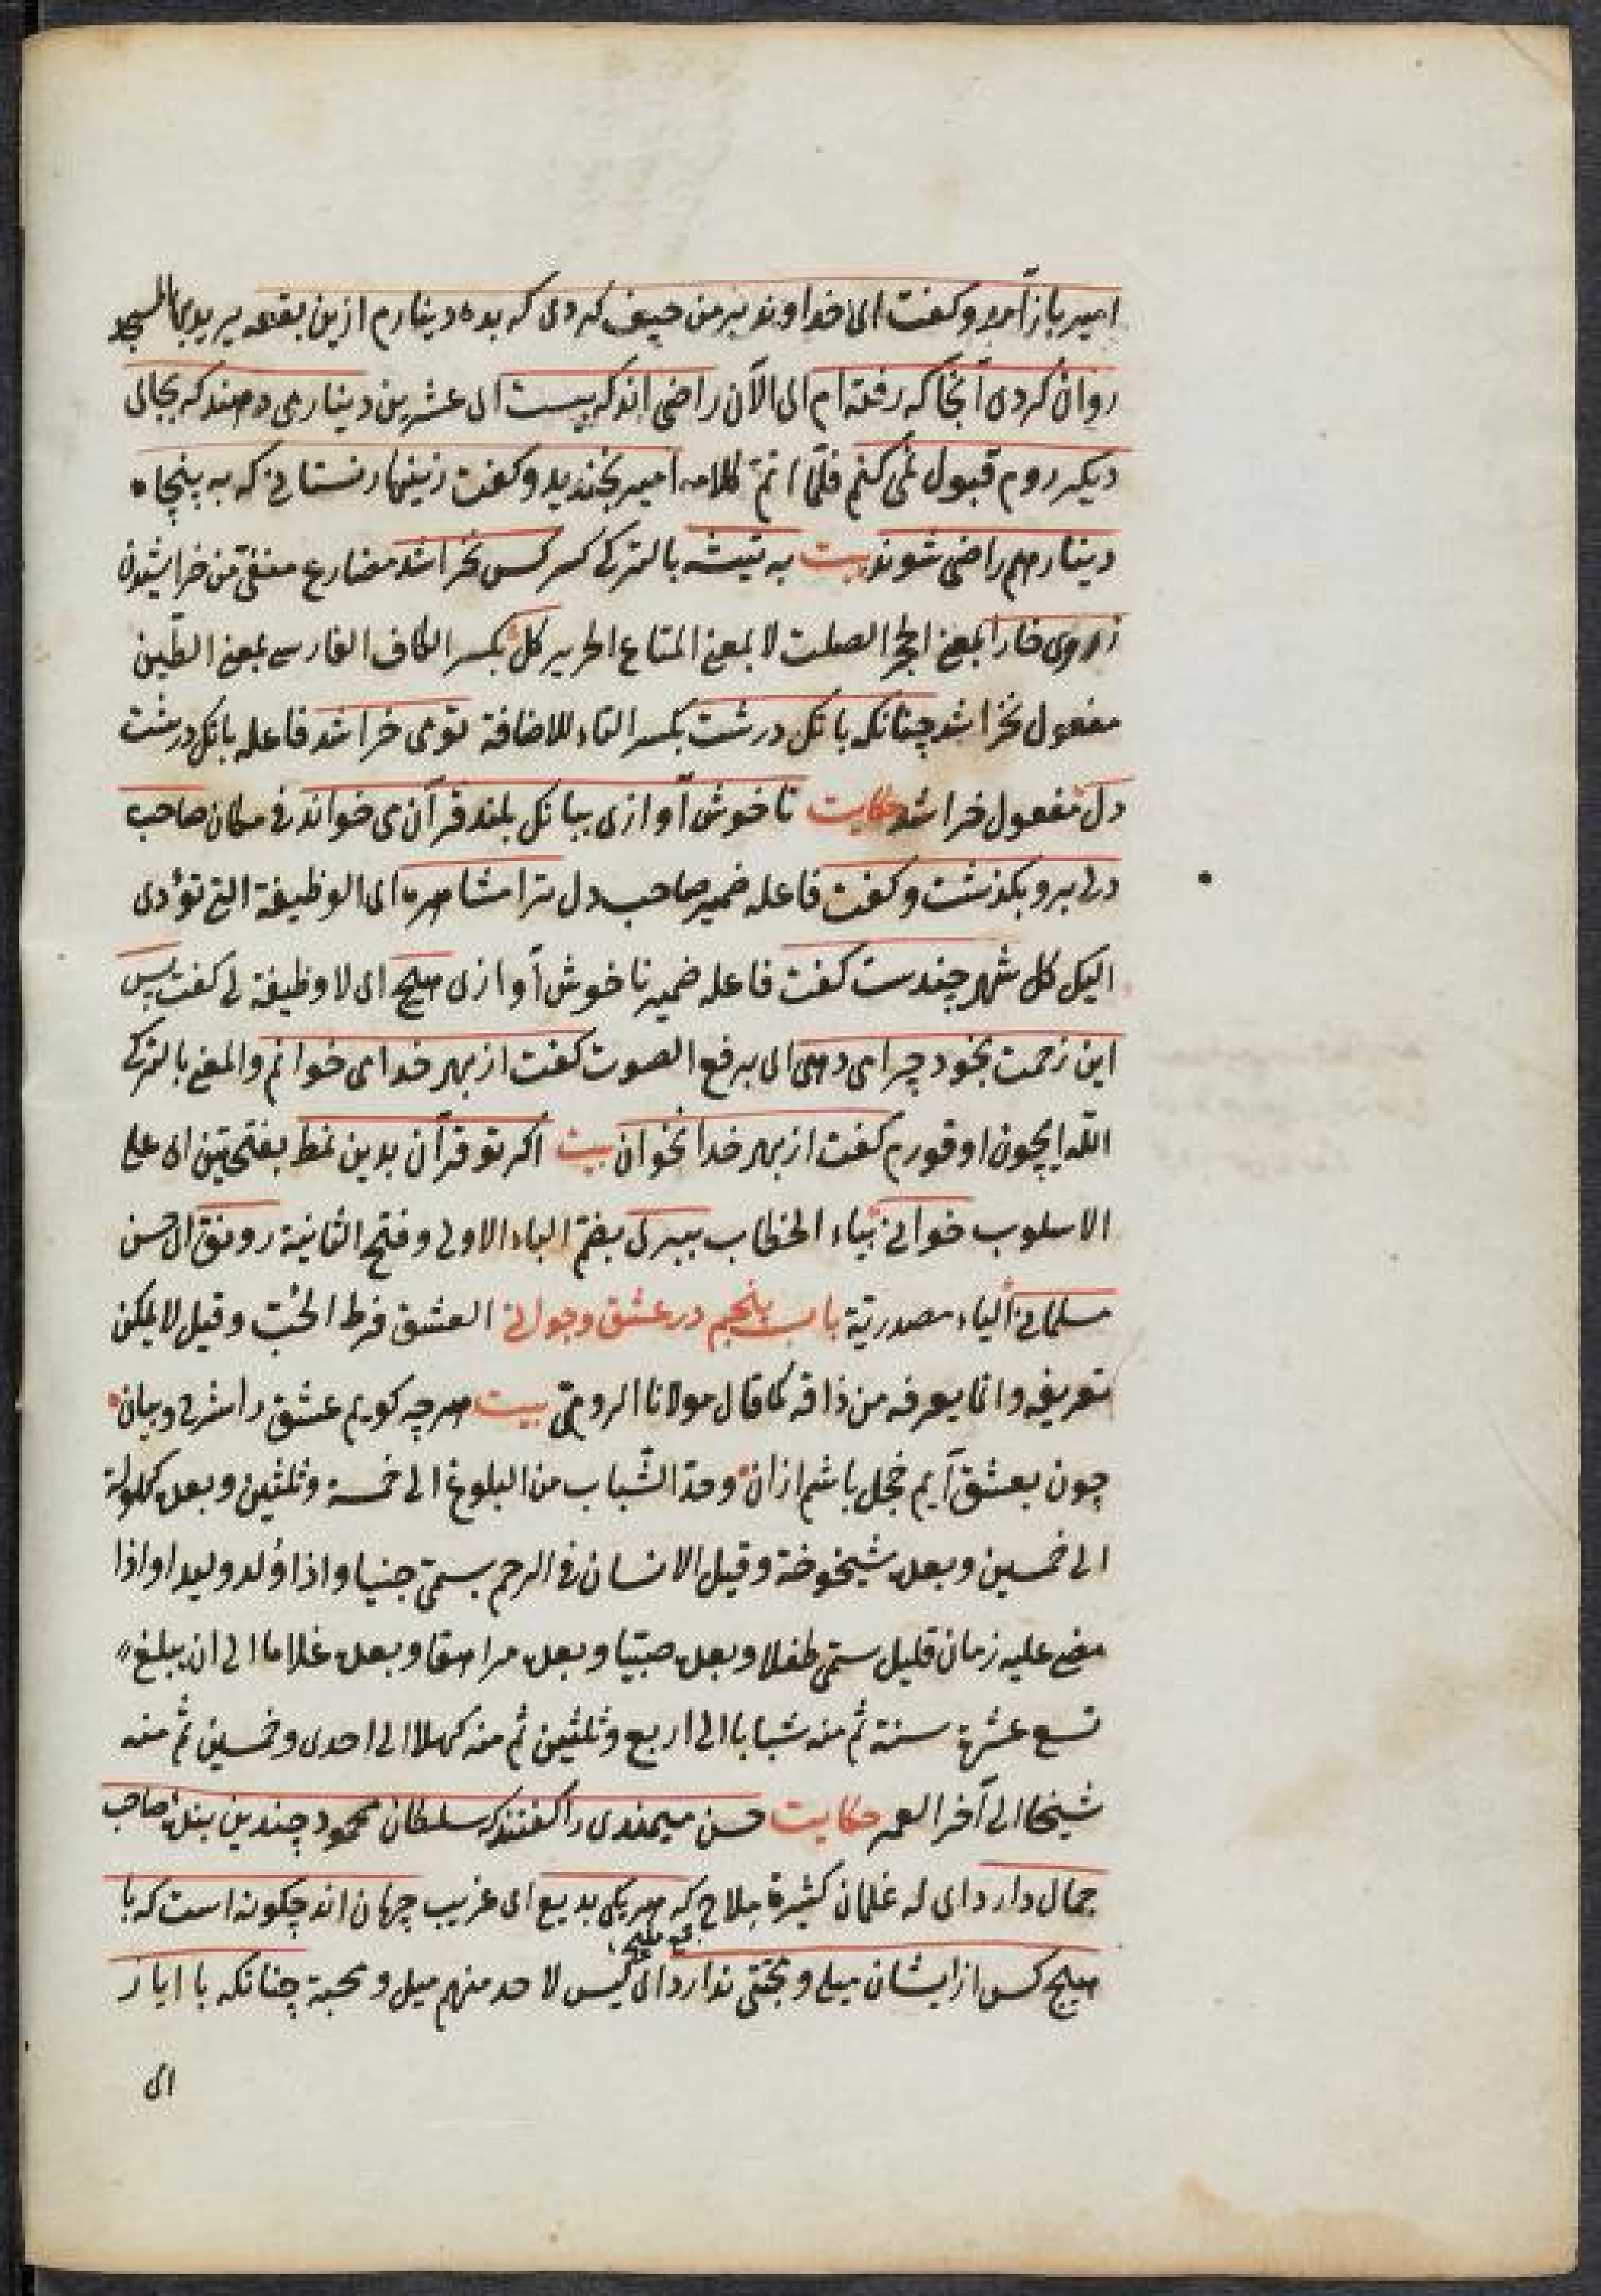 امیر باز آمد وکفت ای خداوند بر من حیف کردی که بده دینارم ازین بقعه یرید بها المسجد
روان کردی آنجا که رفته ام الی الآن راضی اند که بیست ای عشرین دیناری دهند که بجای
دیکر روم قبول نمی کنم فلمّا اتمّ کلامه امیر بخندید وکفت زینهار نستانی که به پنجاه
دینار هم راضی شوند بیت به تیشه بالترکی کسر کس نخراشد مضارع منفیّ من خراشیدن
ز روی خارا بمعنی الحجر الصلت لا بمعنی المتاع الحریر کل بکسر الکاف الفارسی بمعنی الطّین
مفعول نخراشد چنانکه بانک درشت بکسر التاء للاضافة تو می خراشد فاعله بانک درشت
دل مفعول خراشد حکایت ناخوش آوازی ببانک بلند قرآن می خواند فی مکان صاحب
دلی برو بکذشت وکفت فاعله ضمیر صاحب دل ترا مشاهره ای الوظیفة التی تؤدی
الیک کل شهر چندست کفت فاعله ضمیر ناخوش آوازی هیچ ای لا وظیفة لی کفت پس
این زحمت بخود چرا می دهی ای برفع الصوت کفت از بهر خدا می خوانم والمعنی بالترکی
اللّه ایچون اوقورم کفت از بهر خدا مخوان بیت اکر تو قرآن بدین نمط بفتحتین ای علی
الاسلوب خوانی بیاء الخطاب ببری بضمّ الباء الاولی وفتح الثانیة رونق ای حسن
مسلمانی الیاء مصدریّة باب پنجم در عشق وجوانی العشق فرط الحبّ وقیل لا یمکن
تعریفه وانما یعرفه من ذاقه کما قال مولانا الرومیّ بیت هرچه کویم عشق را شرح وبیان
چون بعشق آیم خجل باشم ازان وحدّ الشّباب من البلوغ الی خمسة وثلثین وبعده کهولة
الی خمسین وبعده شیخوخة وقیل الانسان فی الرحم یسمّی جنینا واذا وُلد ولیدا واذا
مضی علیه زمان قلیل سمّی طفلا وبعده صبیّا وبعده مراهقا وبعده غلاما الی ان یبلغ
تسع عشرة سنة ثم منه شبابا الی اربع وثلثین ثم منه کهلا الی احدی وخمسین ثم منه
شیخا الی آخر العمر حکایت حسن میمندی را کفتند که سلطان محمود چندین بنده صاحب
جمال دارد ای له غلمان کثیرة ملاح که هر یکی بدیع ای غریب جهان اند چکونه است که با
هیچ کس از ایشان میلی ومحبتی ندارد ای لیس لاحد منهم میل ومحبة چنانکه با ایاز
ای